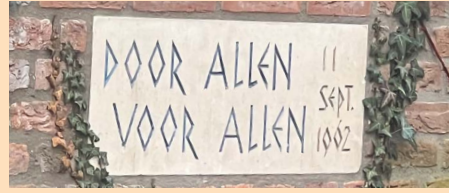 DOOR ALLEN
VOOR ALLEN
11
SEPT.
1962